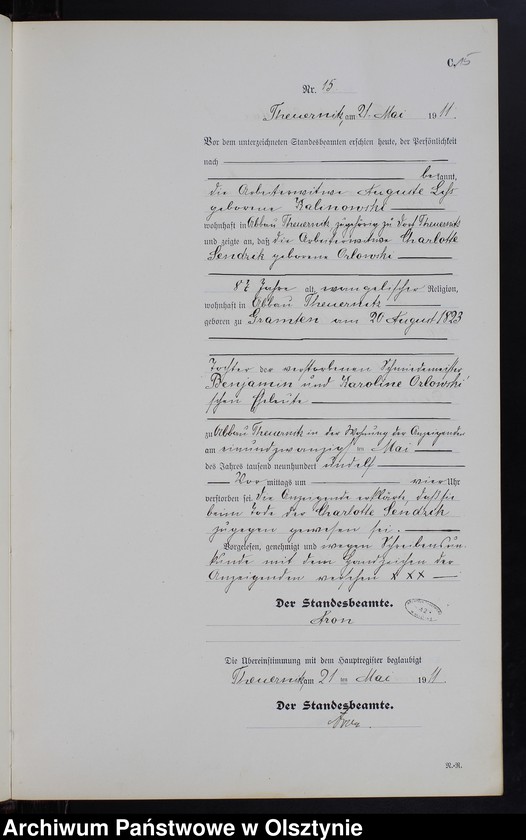 C. 15
Nr. 15
Theuernitz, am 21. Mai 1911
Vor dem unterzeichneten Standesbeamten erschien heute, der Persönlichkeit
nach
bekannt,
die Arbeiterwitwe Auguste
geborene Kalinowski
wohnhaft in Abbau Theuernitz zugehörig zu Dorf Theuernitz
und zeigte an, daß die Arbeiterwitwe Charlotte
Sendzik geborene Orlowski
87 Jahre alt, evangelischer Religion,
wohnhaft in Abbau Theuernitz
geboren zu Gramten am 20 August 1823
Tochter der verstorbenen Schmiedemeister
Benjamin und Karoline Orlowski
schen Eheleute
zu Abbau Theuernitz in der Wohnung der Anzeigenden
am einundzwanzigsten Mai
des Jahres tausend neunhundert undelf
Vormittags um vier Uhr
verstorben sei. Die Anzeigende erklärte, daß sie
beim Tode der Charlotte Sendzik
zugegen gewesen sei.
Vorgelesen, genehmigt und wegen Schreibensun
kunde mit dem Handzeichen der
Anzeigenden versehen x x x
Der Standesbeamte.
Die Übereinstimmung mit dem Hauptregister beglaubigt
Theuernitz, am 21 ten Mai 1911
Der Standesbeamte.
N.-R.
Archiwum Państwowe w Olsztynie